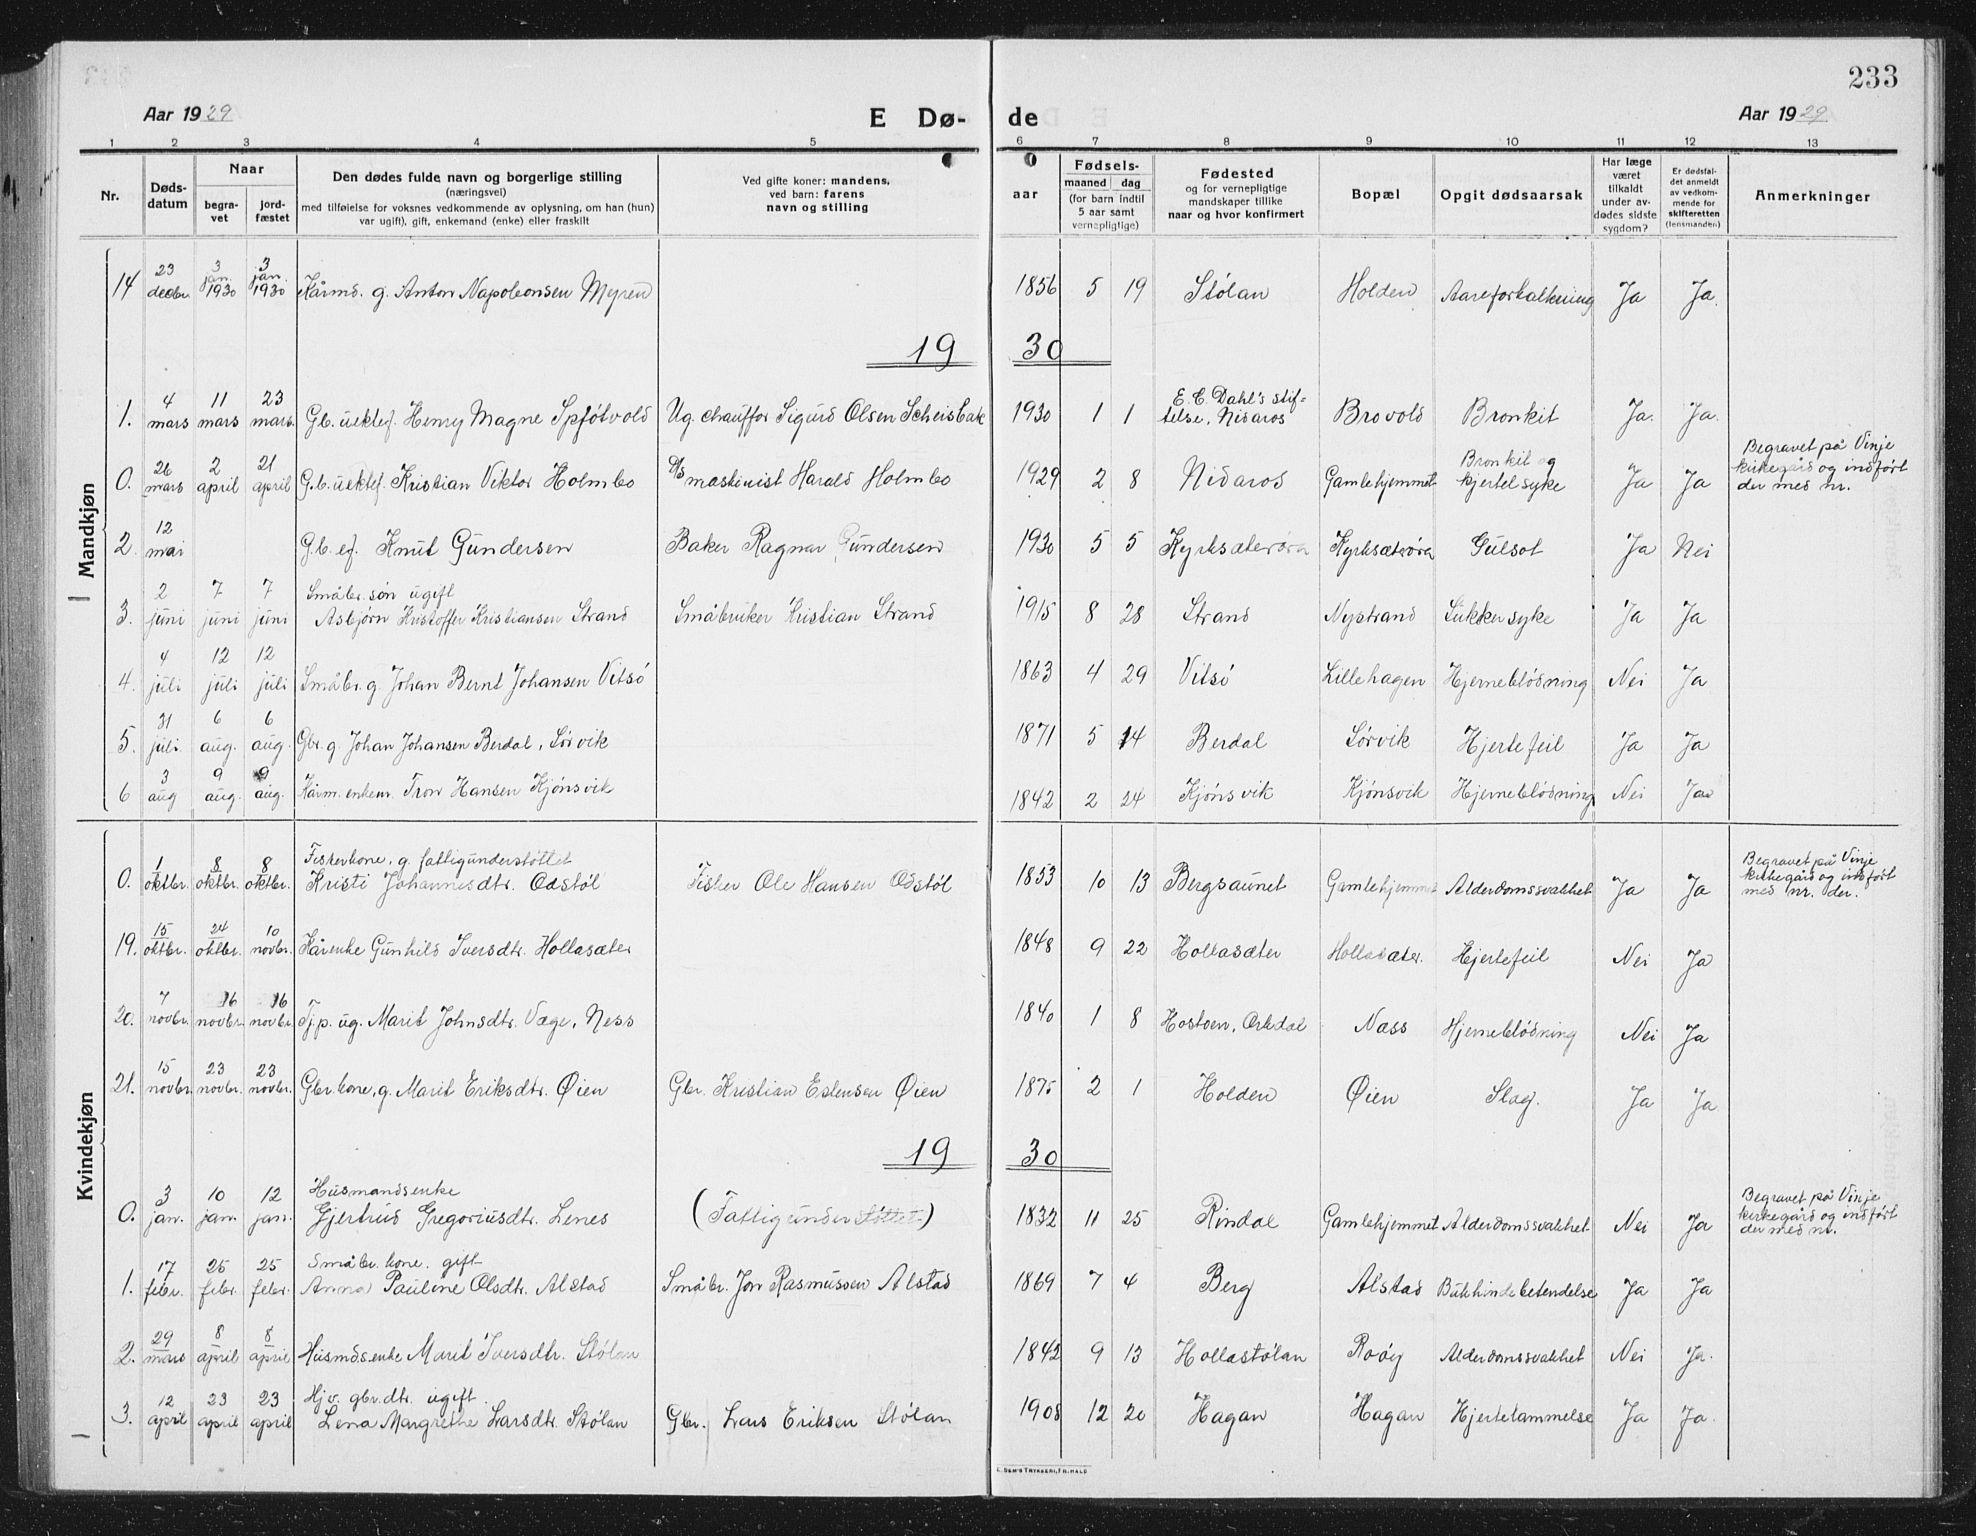 233
Aar 1929 E Dø- de Aar 1929
1 2 3 4 5 6 7 8 9 10 11 12 13
Nr. Døds-datum Naar begra-vet jord-fæstet Den dødes fulde navn og borgerlige stilling (næringsvei) med tilføielse for voksnes vedkommende av oplysning, om han (hun) var ugift), gift, enkemand (enke) eller fraskilt Ved gifte koner: mandens, ved barn: farens navn og stilling Fødsels- aar maaned dag (for barn indtil 5 aar samt vernepligtige) Fødested og for vernepligtige mandskaper tillike naar og hvor konfirmert Bopæl Opgit dødsaarsak Har læge været tilkaldt under av-dødes sidste sygdom? Er dødsfal-det anmeldt av vedkom-mende for skifteretten (lensmanden) Anmerkninger
Mandkjøn
14 23 decbr. 3 jan. 1930 3 jan. 1930 Kårmd. g. Anton Napoleonsen Myren 1856 5 19 Stólan Holden Aareforkalkning Ja Ja.
19 30
1. 4 mars 11 mars 23 mars. Gb. uektef. Henry Magne Spjøtvold Ug. chauffør Sigurd Olsen Scheisbak 1930 1 1 E. C. Dahl's stif-telse, Nidaros Brovold Bronkit Ja. Ja.
0. 26 mars 2 april 21 april G.b. uektef. Kristian Viktor Holmbo D/S maskinist Harald Holmbo 1929 2 8 Nidaros Gamlehjemmet Bronkit og kjertelsyke Ja Ja Begravet på Vinje kirkegård og indført der med nr.
2. 12 mai G.b. ef. Knut Gundersen Baker Ragnar Gundersen 1930 5 5 Kyrksæterøra Kyrksæterøra Gulsot Ja Nei
3. 2 juni 7 juni 7 juni Småbr. søn ugift Asbjørn Kristoffer Kristiansen Strand Småbruker Kristian Strand 1915 8 28 Strand Nystrand Sukkersyke Ja Ja
4. 4 juli 12 juli 12 juli Småbr. g. Johan Bernt Johansen Vitsó 1863 4 29 Vitsó Lillehagen Hjerneblódning Nei Ja
5. 31 juli. 6 aug. 6 aug. Gbr. g. Johan Johansen Berdal, Sórvik 1871 5 14 Berdal Sórvik Hjertefeil Ja Ja
6 3 aug 9 aug. 9 aug. Kårm. enkem. Tron Hansen Kjónsvik 1842 2 24 Kjónsvik Kjónsvik Hjerneblódning Nei Ja
Kvindekjøn
0. 1 oktbr. 8 oktbr. 8 oktbr. Fiskerkone, g. fattigunderstóttet Kristi Johannesdtr. Odstól Fisker Ole Hansen Odstól 1853 10 13 Bergsaunet Gamlehjemmet Alderdomssvakhet Ja Ja Begravet på Vinje kirkegård og indført med nr. der.
19. 15 oktbr. 24 oktbr. 10 novbr. Kårenke Gunhild Iversdtr. Hollasæter 1848 9 22 Hollasæter Hollasæter. Hjertefeil Nei Ja
20. 7 novbr. 16 novbr. 16 novbr. Tj.p. ug. Marit Johnsdtr. Vage, Ness 1840 1 8 Hostoen, Orkdal Næss Hjerneblódning Nei Ja
21. 15 novbr. 23 novbr. 23 novbr. Gbr. kone, g. Marit Eriksdtr. Øien Gbr. Kristian Estensen Øien 1875 2 1 Holden Øien Slag. Ja Ja
19 30
0. 3 jan. 10 jan. 12 jan. Husmandsenke Gjertrud Gregoriusdtr. Lenes (Fattigunderstóttet) 1832 11 25 Rindal Gamlehjemmet Alderdomssvakhet Nei Ja Begravet på Vinje kirkegård og indført der med nr.
1. 17 febr. 25 febr. 25 febr. Småbr. kone. gift Anna Pauline Olsdtr. Alstad Småbr. Jon Rasmussen Alstad 1869 7 4 Berg Alstad Bukhindebetendelse Ja Ja
2. 29 mars 8 april 8 april Husmdsenke Marit Iversdtr. Stólan 1842 9 13 Hollastólan Alderdomssvakhet Nei Ja.
3. 12 april 23 april 23 april Hj.v. gbr. dtr. ugift. Lena Margrethe Larsdtr. Stólan Gbr. Lars Eriksen Stólan 1908 12 20 Hagan Hagan Hjertelammelse Ja Ja.